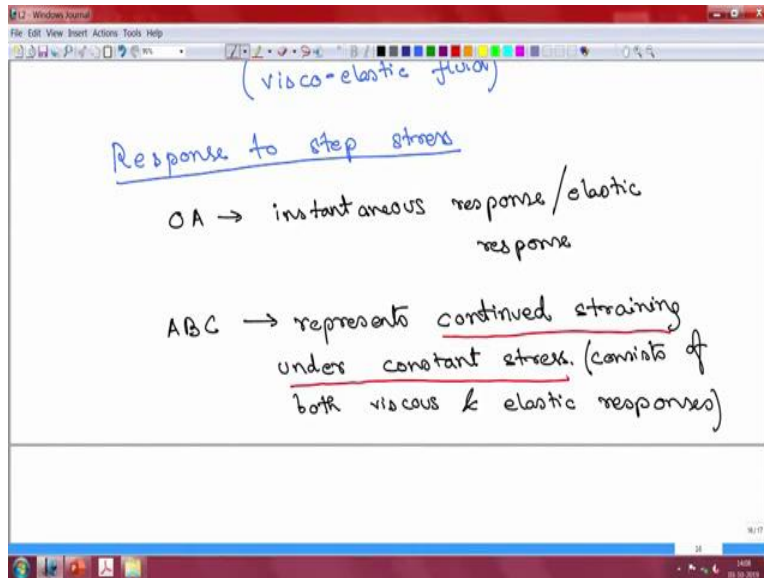 L2 - Windows Journal
File Edit View Insert Actions Tools Help
(visco-elastic fluid)
Response to step stress
OA → instantaneous response/elastic
response
ABC → represents continued straining
under constant stress. (consists of
both viscous & elastic responses)
16/17
16
14:08